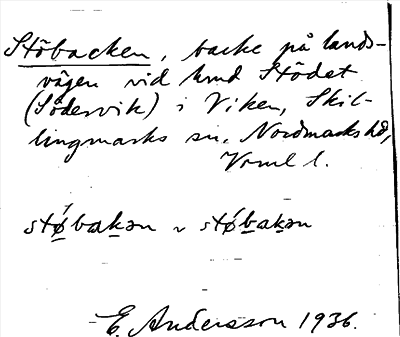 Stöbacken, backe på lands-
vägen vid hmd Stödet
(Södervik) i Viken, Skil-
lingmarks sn. Nordmarks hd,
Vrml l.
stǿ̠bak̠ən ~ stǿb̠ak̠ən
E. Andersson 1936.